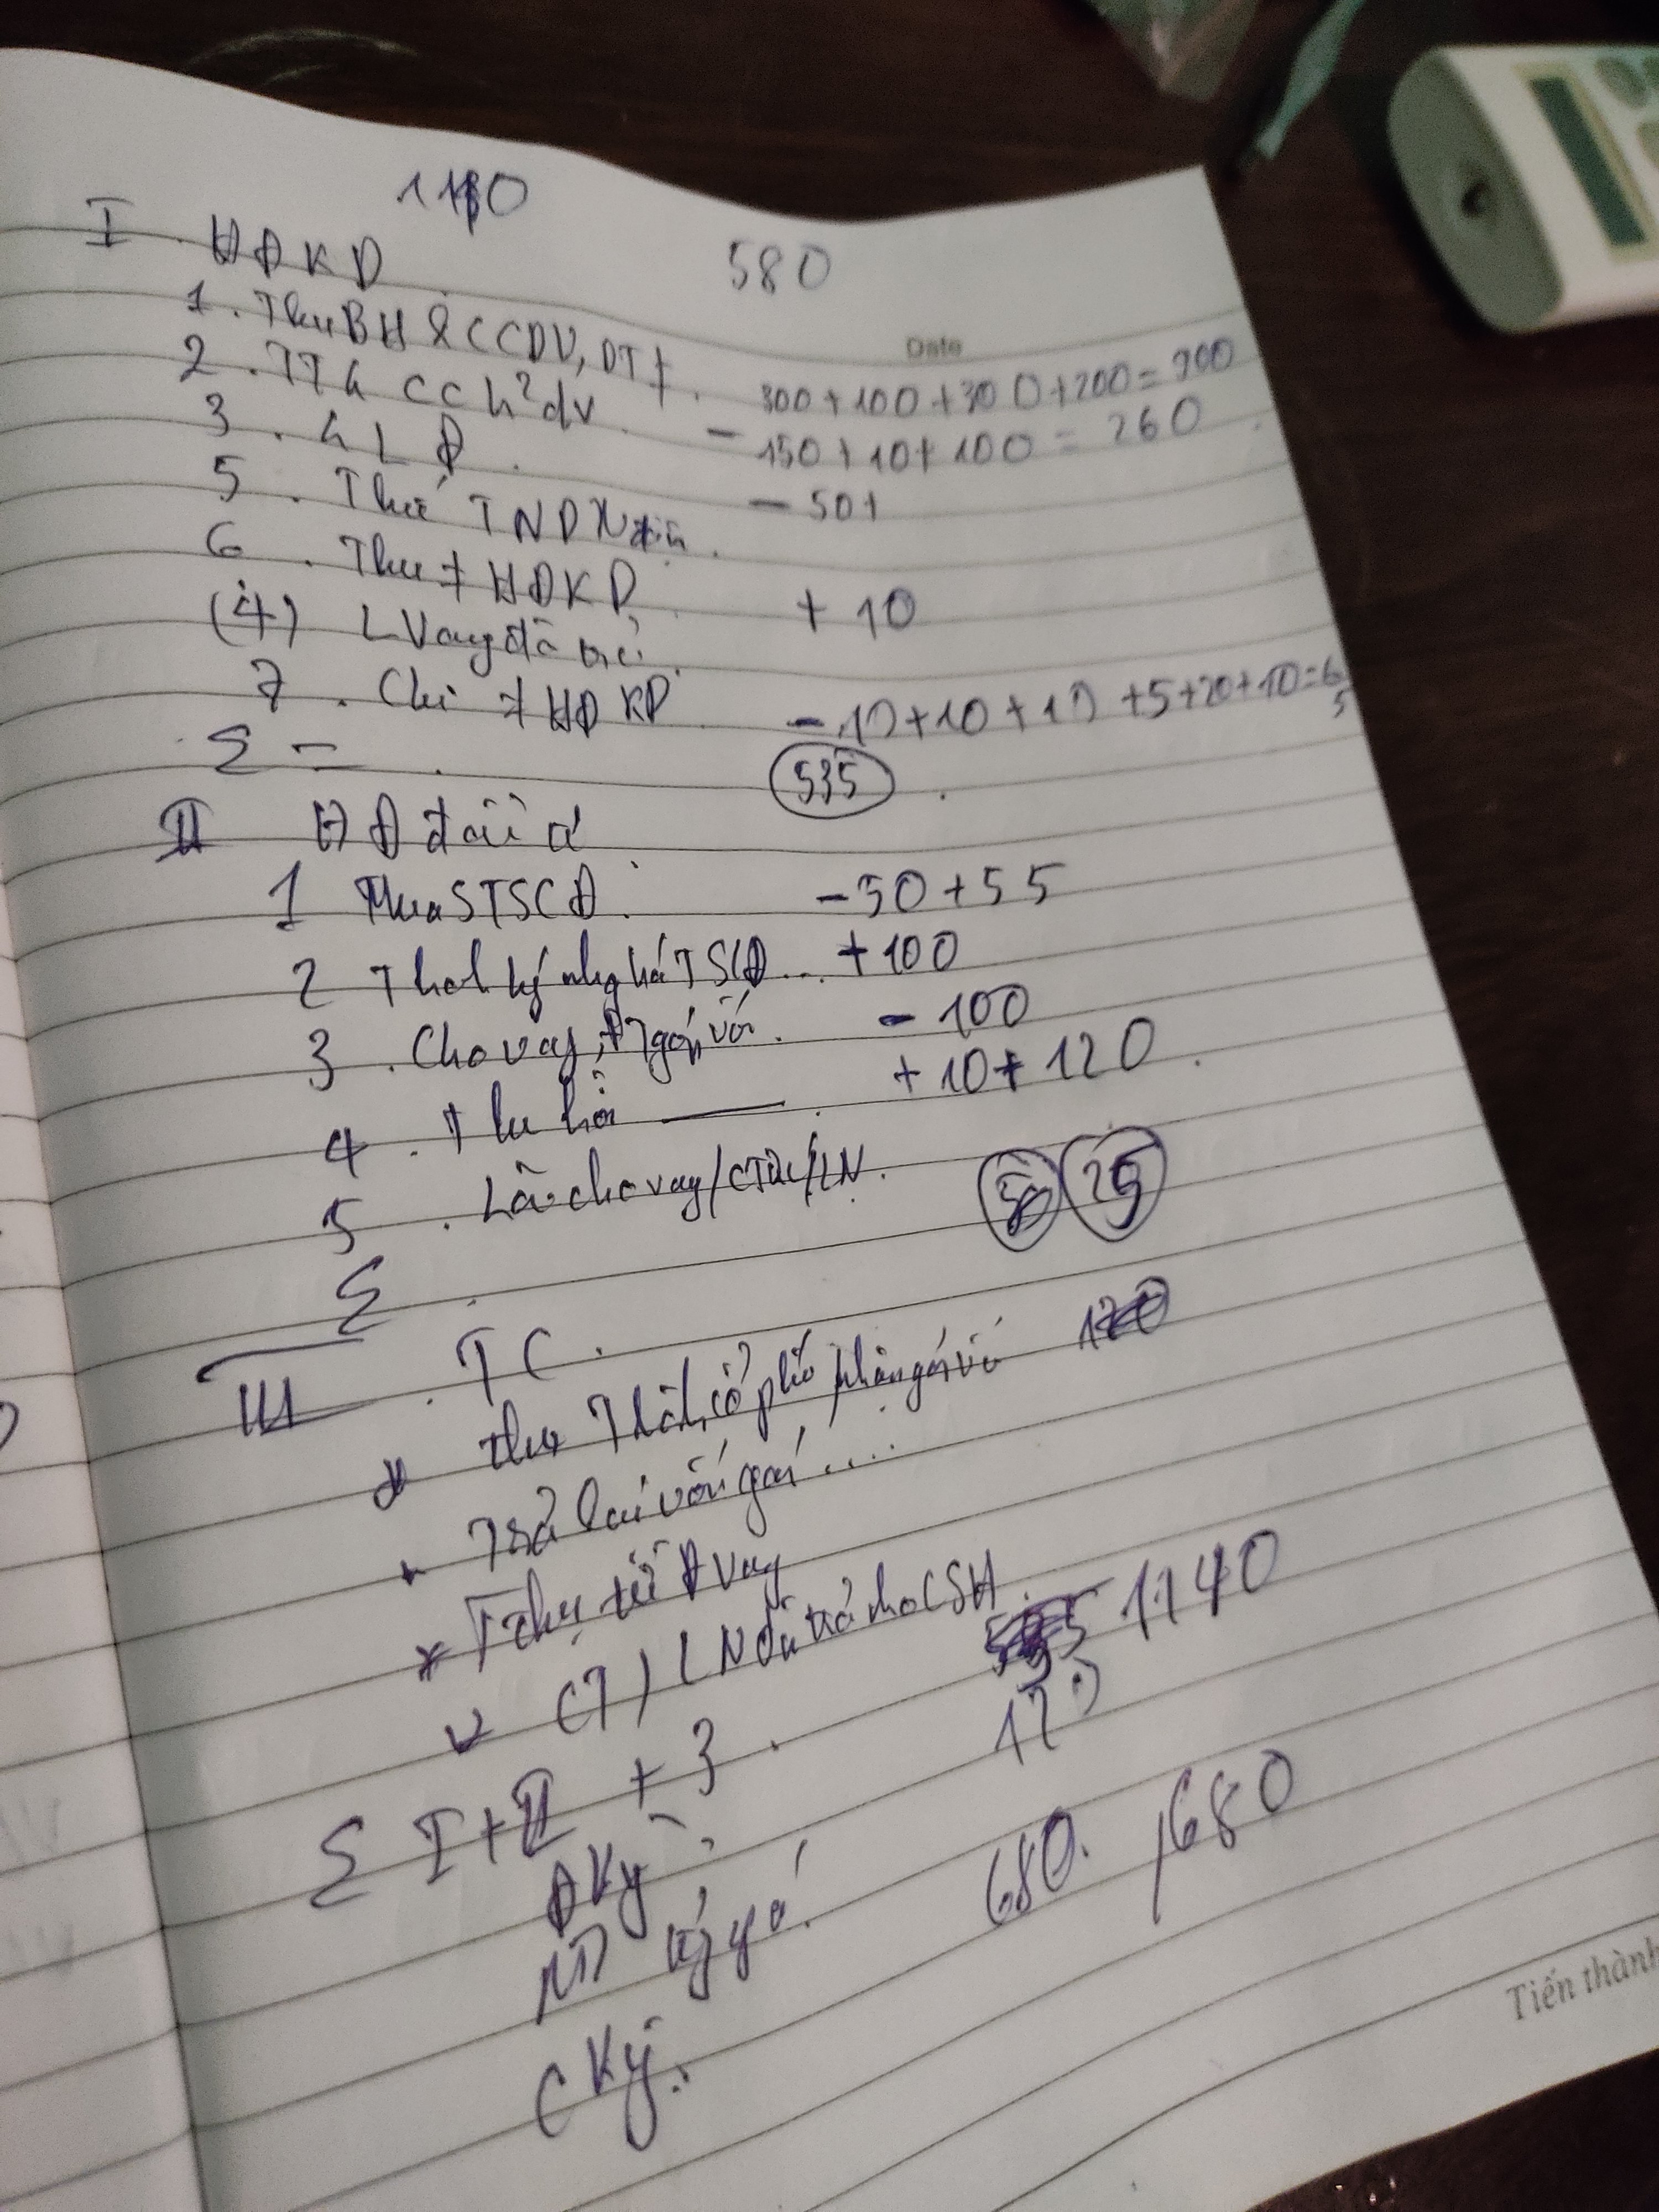 1180
580
I. HĐKD
Date
1. Thu BH & CCDV, DT ≠. 300 + 100 + 300 + 200 = 900
2. TT h cch² dv. - 150 + 10 + 100 = 260
3. h L Đ. - 50+
5. Thuế TNDN
6. Thu ≠ HĐKD. + 10
(4) L Vay đã trả.
7. Chi ≠ HĐ KD. - 10 + 10 + 10 + 5 + 20 + 10 = 65
Σ = . 535 .
II HĐ đầu tư
1 Mua STSCĐ. - 50 + 55
2 Thah lý nhg bá TSCĐ... + 100
3. Cho vay, góp vố. - 100
4. Thu hồi —— . + 10 + 120 .
5. Lãi cho vay/CTức/LN.
Σ . 25
III. TC.
thu cổ phiế nhận góp vố
Trả lại vốn góp ....
Thu từ Đ vay
(T) LN đã trả cho CSH.
Σ I + II + 3 . 1140
Đ Kỳ
680. 680
C Kỳ.
Tiến thành